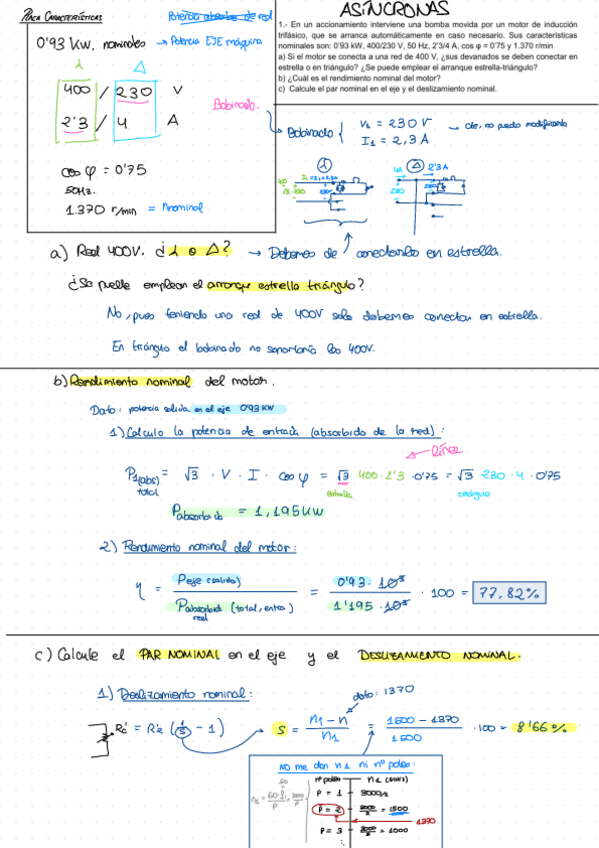 PLACA CARACTERÍSTICAS
Potencia absorbe de red
0'93 KW. nominales → Potencia EJE máquina
400 / 230 V
2'3 / 4 A
Bobinado.
cos φ = 0'75
50Hz.
1.370 r/min = Nnominal
ASÍNCRONAS
1.- En un accionamiento interviene una bomba movida por un motor de inducción
trifásico, que se arranca automáticamente en caso necesario. Sus características
nominales son: 0'93 kW, 400/230 V, 50 Hz, 2'3/4 A, cos φ = 0'75 y 1.370 r/min
a) Si el motor se conecta a una red de 400 V, ¿sus devanados se deben conectar en
estrella o en triángulo? ¿Se puede emplear el arranque estrella-triángulo?
b) ¿Cuál es el rendimiento nominal del motor?
c) Calcule el par nominal en el eje y el deslizamiento nominal.
→ Bobinado { V1 = 230 V → cte, no puedo modificarlo
I1 = 2,3 A
a) Red 400V. ¿⅄ o Δ? → Debemos de conectarlo en estrella.
¿Se puede emplear el arranque estrella triángulo?
No, pues teniendo una red de 400V solo debemos conectar en estrella.
En triángulo el bobinado no soportaría los 400V.
b) Rendimiento nominal del motor.
Dato: potencia salida en el eje 0'93 KW
1) Calculo la potencia de entrada (absorbido de la red):
línea
P1(abs) = √3 · V · I · cos φ = √3 400 · 2'3 · 0'75 = √3 230 · 4 · 0'75
total
estrella
triángulo
Pabsorbido = 1,195 KW
2) Rendimiento nominal del motor:
η = Peje (salida) / Pabsorbido (total, entra) = 0'93 · 10³ / 1'195 · 10³ · 100 = 77,82%
real
c) Calcule el PAR NOMINAL en el eje y el DESLIZAMIENTO NOMINAL.
1) Deslizamiento nominal:
dato: 1370
Rc' = R'2 (1/S - 1) → S = n1 - n / n1 = 1500 - 1370 / 1500 · 100 = 8'66%
NO me dan n1 ni nº polos:
nº polos n1 (50Hz)
P = 1 3000/1
P = 2 3000/2 = 1500
1370
P = 3 3000/3 = 1000